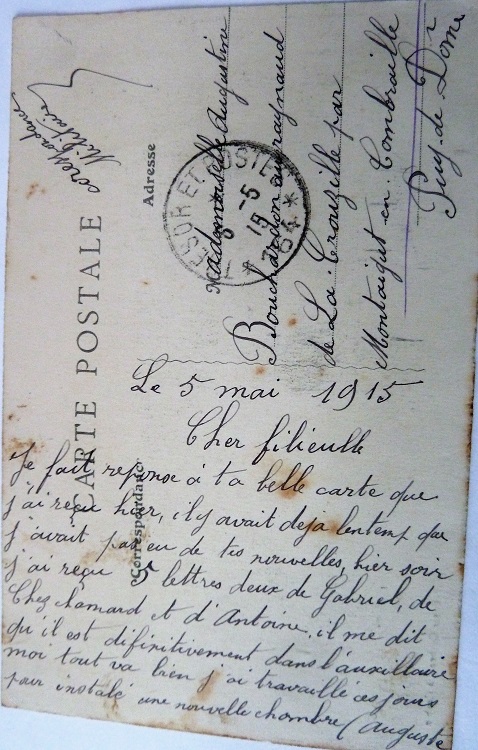 Correspondance
Militaire
CARTE POSTALE
Adresse
Correspondance
TRESOR ET POSTES
6 -5
15
* 84 *
Mademoiselle Augustine
Bouchardon au raynaud
de La Crouzille par
Montaigut en Combraille
Puy-de-Dome
Le 5 mai 1915
Cher filieulle
Je fait reponse à ta belle carte que
j'ai reçu hier, il y avait deja lontemp que
j'avait pas eu de tes nouvelles, hier soir
j'ai reçu 5 lettres deux de Gabriel, de
Chez chamard et d'Antoine, il me dit
qu'il est difinitivement dans l'auxillaire
moi tout va bien j'ai travaillé ces jours
pour instalé une nouvelle chambre (Auguste